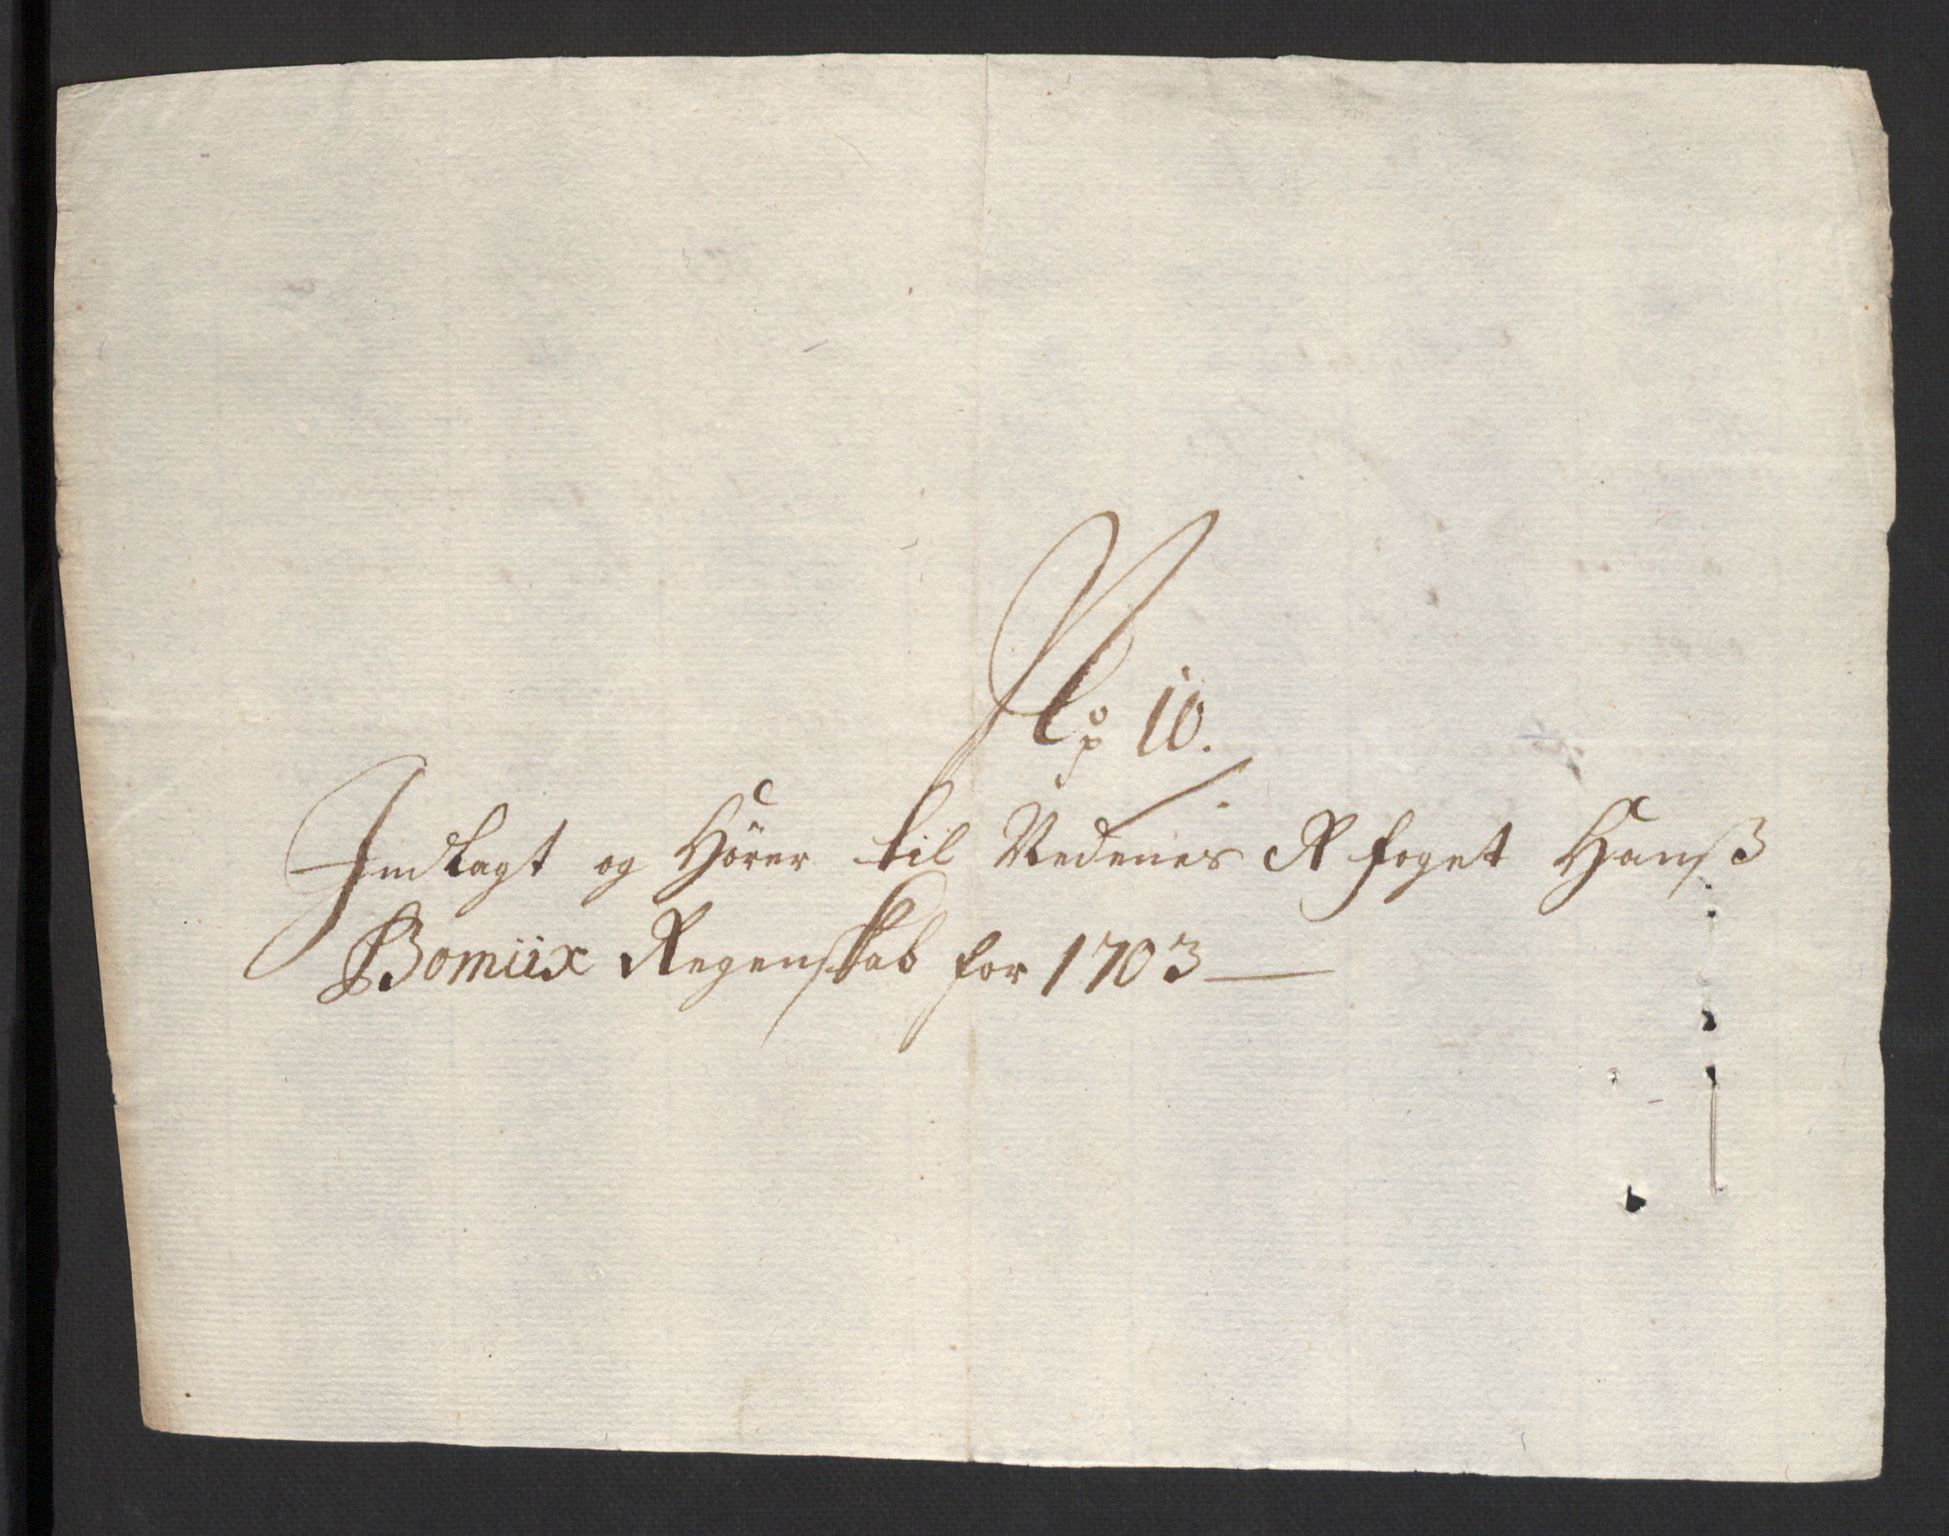 No 10.
Indlagt og Hörer til Nedenes R foget Hanß
Bomüx Regenskab for 1703